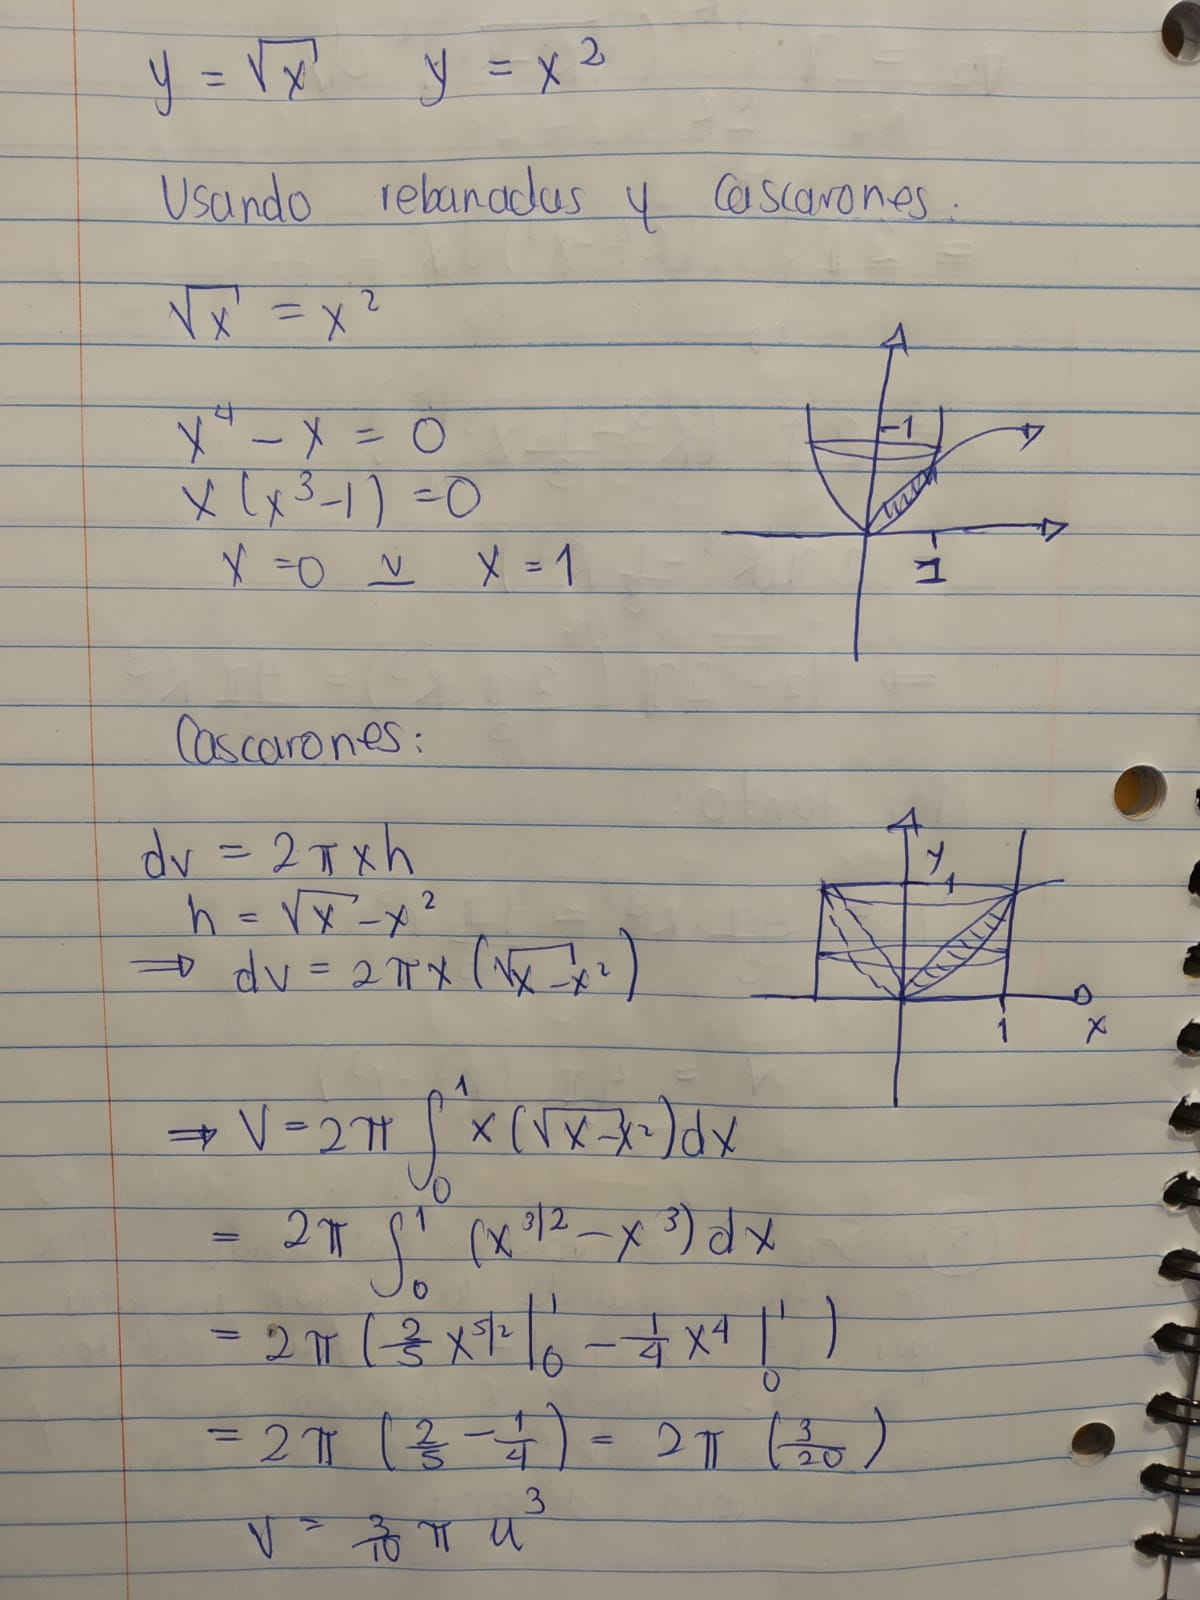 y = √x   y = x²
Usando rebanadas y Cascarones.
√x = x²
x⁴ - x = 0
x(x³-1) = 0
x = 0 v x = 1
-1
1
Cascarones:
dv = 2πxh
h = √x - x²
⇒ dv = 2πx(√x - x²)
y
1
1
x
⇒ V = 2π ∫₀¹ x(√x - x²)dx
= 2π ∫₀¹ (x^3/2 - x³)dx
= 2π (2/5 x^5/2 |₀¹ - 1/4 x⁴ |₀¹)
= 2π (2/5 - 1/4) = 2π (3/20)
V = 3/10 π u³